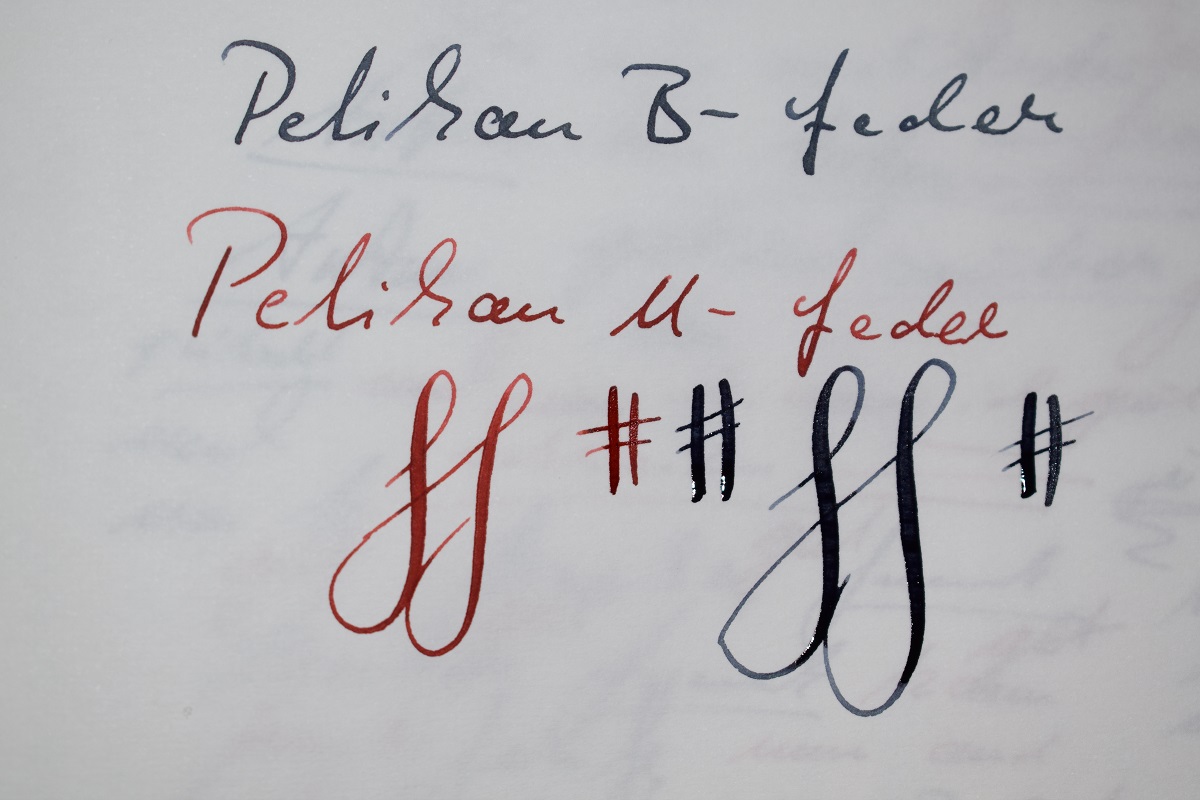 Pelikan B- feder
Pelikan M- feder
ff # # ff #